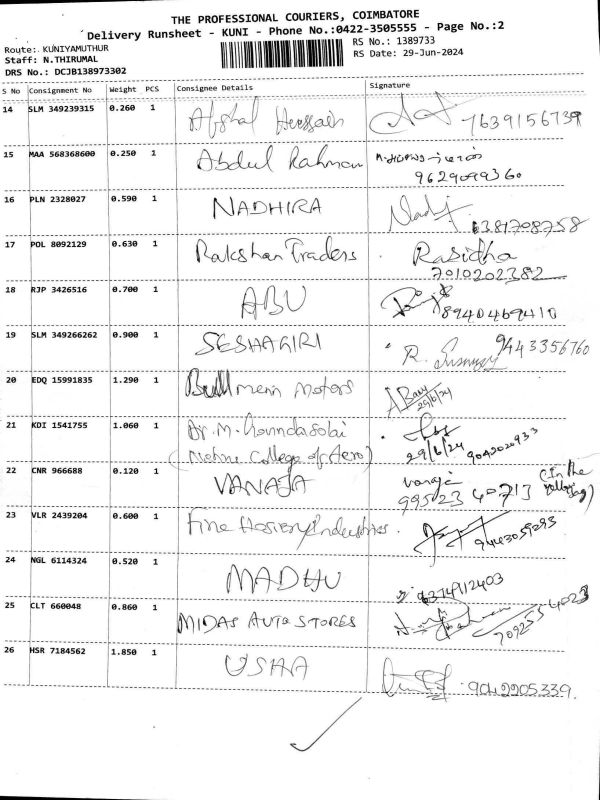 THE PROFESSIONAL COURIERS, COIMBATORE
Delivery Runsheet - KUNI - Phone No.:0422-3505555 - Page No.:2
Route: KUNIYAMUTHUR
RS No.: 1389733
Staff: N.THIRUMAL
RS Date: 29-Jun-2024
DRS No.: DCJB138973302
S No Consignment No Weight PCS Consignee Details Signature
14 SLM 349239315 0.260 1 Afshal Hussain 7639156739
15 MAA 568368600 0.250 1 Abdul Rahman
9629099360
16 PLN 2328027 0.590 1 NADHIRA 6381708758
17 POL 8092129 0.630 1 Rakshan Traders Rasidha
7010202382
18 RJP 3426516 0.700 1 ABU 8940469410
19 SLM 349266262 0.900 1 SESHAGIRI R. 9443356760
20 EDQ 15991835 1.290 1 Bullmenn Motors
29/6/24
21 KDI 1541755 1.060 1 Dr. M. Govindasalai
(Nehru College of Aero) 29/6/24 9043020933
22 CNR 966688 0.120 1 VANAJA vanaja
99523 40713 (In the yellow bag)
23 VLR 2439204 0.600 1 Fine Hosiery Industries. 9443059293
24 NGL 6114324 0.520 1 MADHU 6374912403
25 CLT 660048 0.860 1 MIDAS AUTO STORES 7092554023
26 HSR 7184562 1.850 1 USHA 9042205339.